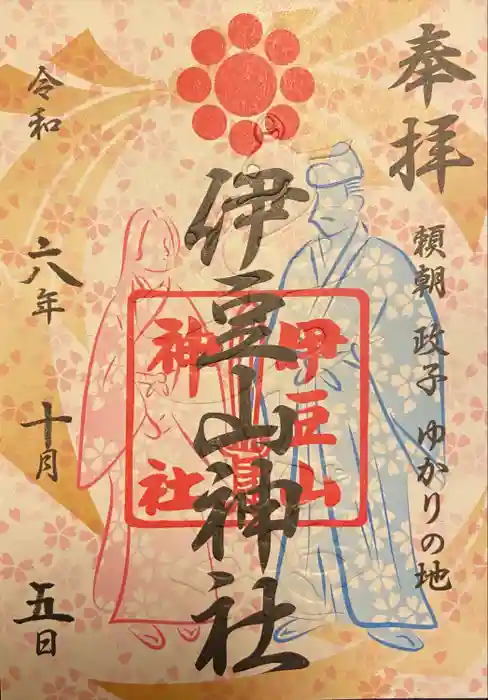 奉拝
頼朝 政子 ゆかりの地
伊豆山神社
伊豆山
神社
令和 六年 十月 五日